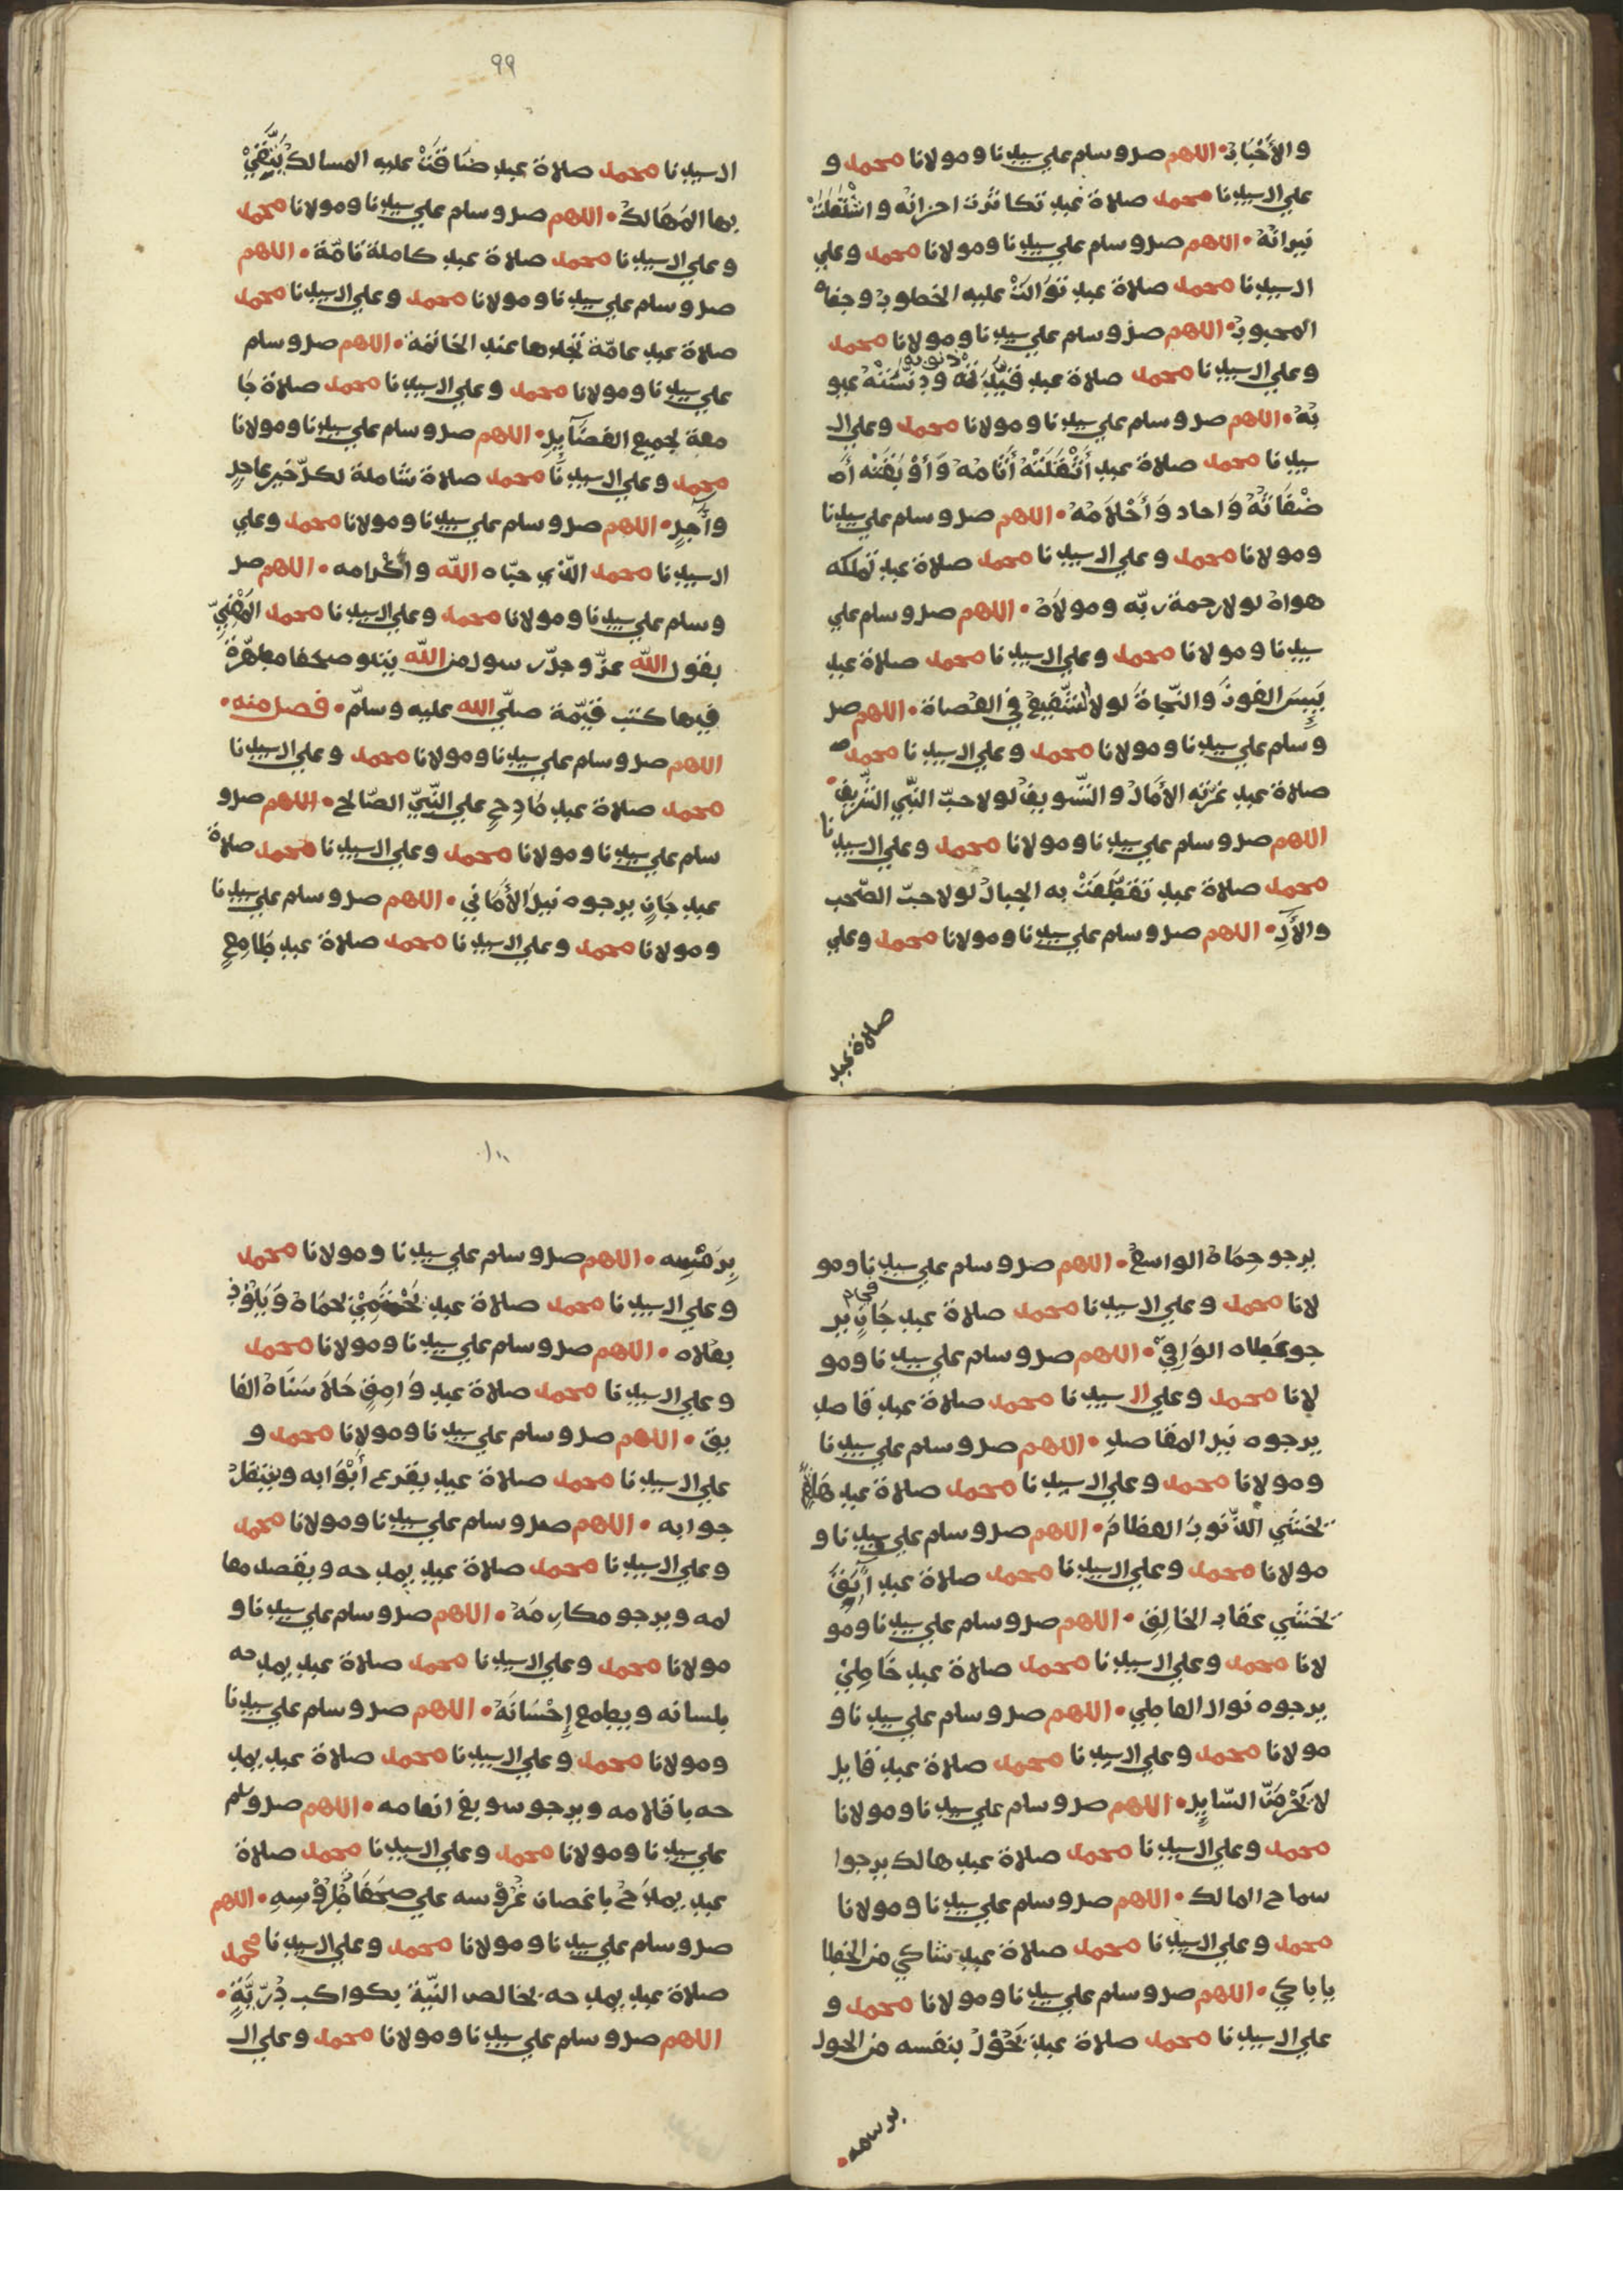 والأحباب • اللهم صل وسلم علي سيدنا ومولانا محمد و
علي ال سيدنا محمد صلاة عبد تكاثرت احزانه واشتعلت
نيرانه • اللهم صل وسلم علي سيدنا ومولانا محمد وعلي
ال سيدنا محمد صلاة عبد توالت عليه الخطوب وجفاه
المحبوب • اللهم صل وسلم علي سيدنا ومولانا محمد
وعلي ال سيدنا محمد صلاة عبد قيدته ذنوبه ودنسته عيو
به • اللهم صل وسلم علي سيدنا ومولانا محمد وعلي ال
سيدنا محمد صلاة عبد أثقلته أثامه وأوبقته أ
ضغاثه واحاد وأحلامه • اللهم صل وسلم علي سيدنا
ومولانا محمد وعلي ال سيدنا محمد صلاة عبد تملكه
هواه لولا رحمة ربه ومولاه • اللهم صل وسلم علي
سيدنا ومولانا محمد وعلي ال سيدنا محمد صلاة عبد
ييس الفوز والنجاة لولا لشفيع في العصاة • اللهم صل
وسلم علي سيدنا ومولانا محمد وعلي ال سيدنا محمد
صلاة عبد غرته الأمال والتسويف لولا حب النبي الشريف •
اللهم صل وسلم علي سيدنا ومولانا محمد وعلي ال سيدنا
محمد صلاة عبد تقطعت به الحبال لولا حب الصحب
والأل • اللهم صل وسلم علي سيدنا ومولانا محمد وعلي
صلاة عبد
٩٩
ال سيدنا محمد صلاة عبد ضاقت عليه المسالك يتقي
بها المهالك • اللهم صل وسلم علي سيدنا ومولانا محمد
وعلي ال سيدنا محمد صلاة عبد كاملة تامة • اللهم
صل وسلم علي سيدنا ومولانا محمد وعلي ال سيدنا محمد
صلاة عبد عامة نجدها عند الخاتمة • اللهم صل وسلم
علي سيدنا ومولانا محمد وعلي ال سيدنا محمد صلاة جا
معة لجميع الفضايل • اللهم صل وسلم علي سيدنا ومولانا
محمد وعلي ال سيدنا محمد صلاة شاملة لكل خير عاجل
وآجل • اللهم صل وسلم علي سيدنا ومولانا محمد وعلي
ال سيدنا محمد الذي حباه الله واكرامه • اللهم صل
وسلم علي سيدنا ومولانا محمد وعلي ال سيدنا محمد المعني
بقول الله عز وجل رسول من الله يتلو صحفا مطهرة
فيها كتب قيمة صلي الله عليه وسلم • فصل منه •
اللهم صل وسلم علي سيدنا ومولانا محمد وعلي ال سيدنا
محمد صلاة عبد مادح علي النبي الصالح • اللهم صل و
سلم علي سيدنا ومولانا محمد وعلي ال سيدنا محمد صلاة
عبد جان يرجوه نيل الأماني • اللهم صل وسلم علي سيدنا
ومولانا محمد وعلي ال سيدنا محمد صلاة عبد طامع
يرجو حماه الواسع • اللهم صل وسلم علي سيدنا ومو
لانا محمد وعلي ال سيدنا محمد صلاة عبد جان ير
جو عطاه الوافي • اللهم صل وسلم علي سيدنا ومو
لانا محمد وعلي ال سيدنا محمد صلاة عبد قاصد
يرجوه نيل المقاصد • اللهم صل وسلم علي سيدنا
ومولانا محمد وعلي ال سيدنا محمد صلاة عبد
يخشي الذنوب العظام • اللهم صل وسلم علي سيدنا و
مولانا محمد وعلي ال سيدنا محمد صلاة عبد آبق
يخشي عقاب الخالق • اللهم صل وسلم علي سيدنا ومو
لانا محمد وعلي ال سيدنا محمد صلاة عبد خاطي
يرجوه نوال العاطي • اللهم صل وسلم علي سيدنا و
مولانا محمد وعلي ال سيدنا محمد صلاة عبد قايل
لا تحرمن السايل • اللهم صل وسلم علي سيدنا ومولانا
محمد وعلي ال سيدنا محمد صلاة عبد هالك يرجوا
سماح المالك • اللهم صل وسلم علي سيدنا ومولانا
محمد وعلي ال سيدنا محمد صلاة عبد شاكي من الخطا
يا باكي • اللهم صل وسلم علي سيدنا ومولانا محمد و
علي ال سيدنا محمد صلاة عبد تحول بنفسه من الحول
برسمه •
١٠٠
برمسه • اللهم صل وسلم علي سيدنا ومولانا محمد
وعلي ال سيدنا محمد صلاة عبد يحتمي بحماه ويلوذ
بعلاه • اللهم صل وسلم علي سيدنا ومولانا محمد
وعلي ال سيدنا محمد صلاة عبد وامق حلا سناه الفا
يق • اللهم صل وسلم علي سيدنا ومولانا محمد و
علي ال سيدنا محمد صلاة عبد يقرع أبوابه وينتظر
جوابه • اللهم صل وسلم علي سيدنا ومولانا محمد
وعلي ال سيدنا محمد صلاة عبد يمدحه ويقصد معا
لمه ويرجو مكارمه • اللهم صل وسلم علي سيدنا و
مولانا محمد وعلي ال سيدنا محمد صلاة عبد يمدحه
بلسانه ويطمع إحسانه • اللهم صل وسلم علي سيدنا
ومولانا محمد وعلي ال سيدنا محمد صلاة عبد يمد
حه باقلامه ويرجو سوبغ انعامه • اللهم صل وسلم
علي سيدنا ومولانا محمد وعلي ال سيدنا محمد صلاة
عبد يمدح باغصان غروسه علي صحفا طروسه • اللهم
صل وسلم علي سيدنا ومولانا محمد وعلي ال سيدنا محمد
صلاة عبد يمدحه بخالص النية بكواكب درية •
اللهم صل وسلم علي سيدنا ومولانا محمد وعلي ال